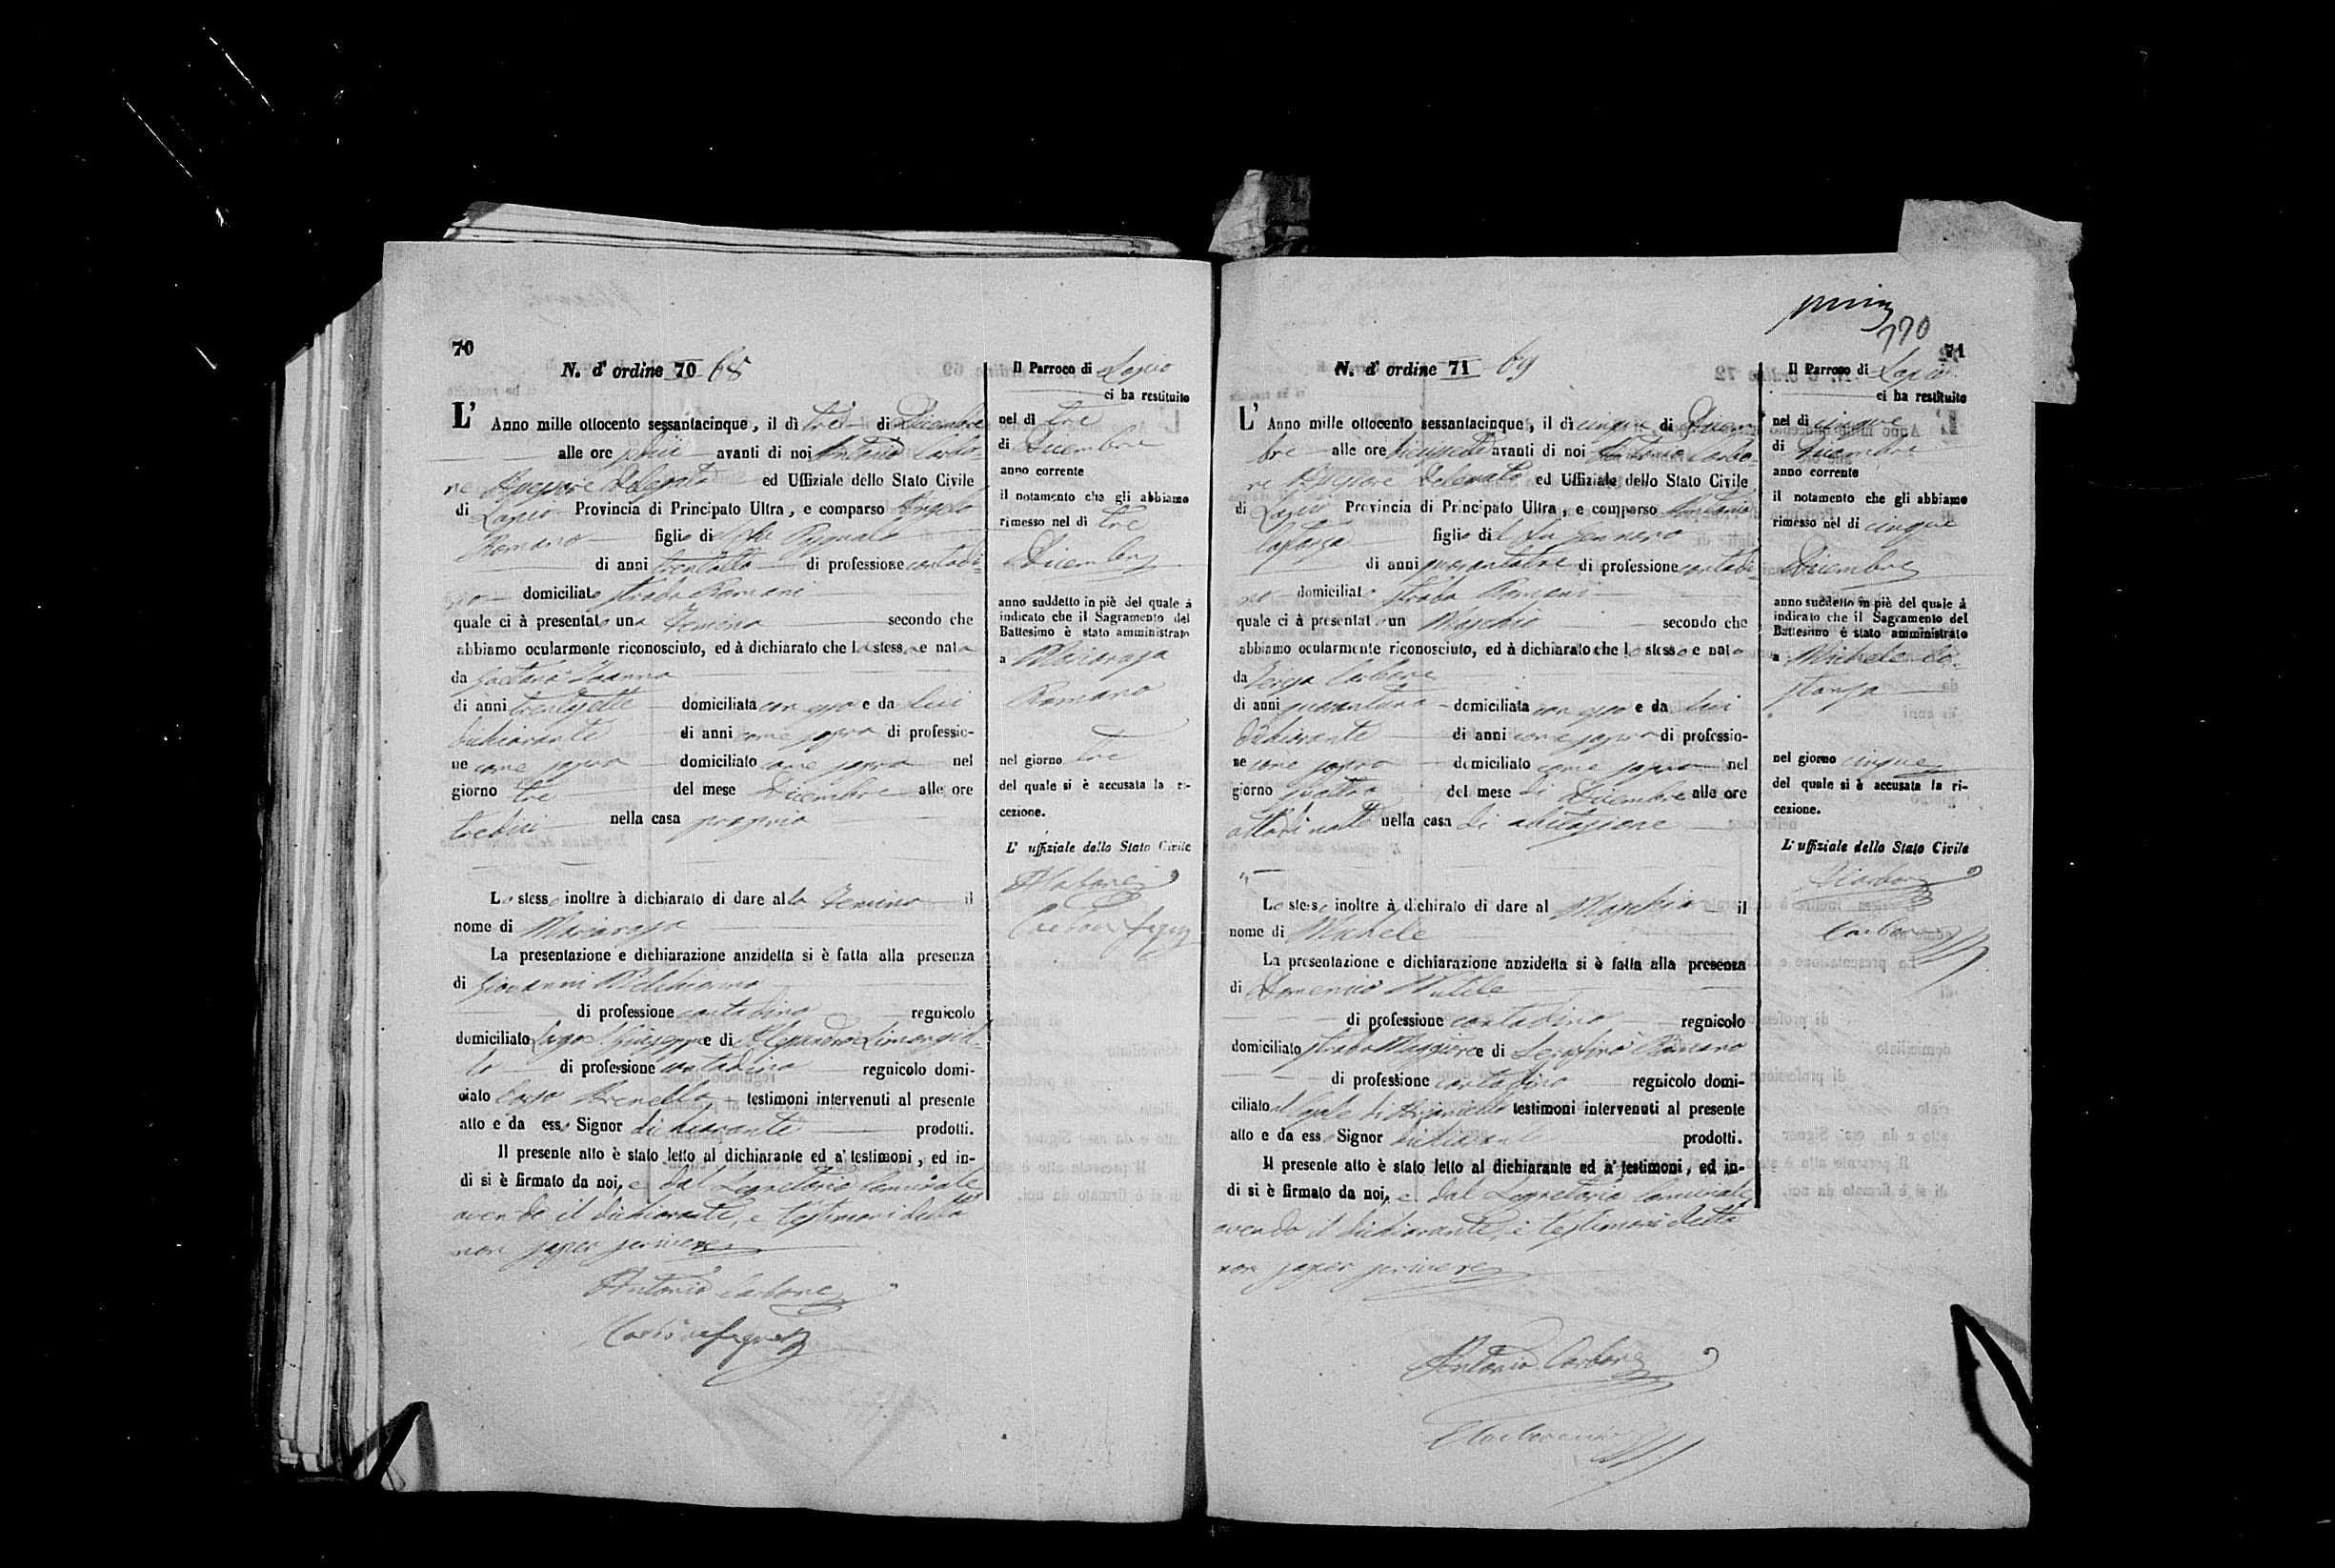 70
N. d' ordine 70 68
L' Anno mille ottocento sessantacinque, il dì tre di Dicembre
alle ore avanti di noi Antonio Carbo-
ne Assessore Delegato ed Uffiziale dello Stato Civile
di Lapio Provincia di Principato Ultra, e comparso Angelo
Romano figlio di Pasquale
di anni trentotto di professione contadi-
no domiciliato strada Romani
quale ci à presentato una Femina secondo che
abbiamo ocularmente riconosciuto, ed à dichiarato che la stessa e nata
da Gaetana
di anni trentasette domiciliata con esso e da lui
dichiarante di anni come sopra di professio-
ne come sopra domiciliato come sopra nel
giorno tre del mese Dicembre alle ore
tredici nella casa propria
Lo stesso inoltre à dichiarato di dare alla Femina il
nome di Mariarosa
La presentazione e dichiarazione anzidetta si è fatta alla presenza
di Giovanni
di professione contadino regnicolo
domiciliato Largo Giuseppe e di Alessandro
di professione contadino regnicolo domi-
ciliato testimoni intervenuti al presente
atto e da esso Signor dichiarante prodotti.
Il presente atto è stato letto al dichiarante ed a' testimoni, ed in-
di si è firmato da noi, e dal Segretario Comunale
avendo il dichiarante, e testimoni detto
non saper scrivere
Antonio Carbone
Il Parroco di Lapio
ci ha restituito
nel dì tre
di Dicembre
anno corrente
il notamento che gli abbiamo
rimesso nel dì tre
Dicembre
anno suddetto in piè del quale à
indicato che il Sagramento del
Battesimo è stato amministrato
a Mariarosa
Romano
nel giorno tre
del quale si è accusata la ri-
cezione.
L' uffiziale dello Stato Civile
A Carbone
770
71
N. d' ordine 71 69
L' Anno mille ottocento sessantacinque, il dì cinque di Dicem-
bre alle ore avanti di noi Antonio Carbo-
ne Assessore Delegato ed Uffiziale dello Stato Civile
di Lapio Provincia di Principato Ultra, e comparso Antonio
figlio del fu Gennaro
di anni quarantatre di professione contadi-
no domiciliato strada Romani
quale ci à presentato un Maschio secondo che
abbiamo ocularmente riconosciuto, ed à dichiarato che lo stesso e nato
da Teresa Carbone
di anni domiciliata con esso e da lui
dichiarante di anni come sopra di professio-
ne come sopra domiciliato come sopra nel
giorno quattro del mese di Dicembre alle ore
nella casa di abitazione
Lo stesso inoltre à dichirato di dare al Maschio il
nome di Michele
La presentazione e dichiarazione anzidetta si è fatta alla presenza
di Domenico
di professione contadino regnicolo
domiciliato strada Maggiore e di Serafino Romano
di professione contadino regnicolo domi-
ciliato testimoni intervenuti al presente
atto e da esso Signor dichiarante prodotti.
Il presente atto è stato letto al dichiarante ed a' testimoni, ed in-
di si è firmato da noi, e dal Segretario Comunale
avendo il dichiarante, e testimoni detto
non saper scrivere
Antonio Carbone
Il Parroco di Lapio
ci ha restituito
nel dì cinque
di Dicembre
anno corrente
il notamento che gli abbiamo
rimesso nel dì cinque
Dicembre
anno suddetto in piè del quale à
indicato che il Sagramento del
Battesimo è stato amministrato
a Michele
nel giorno cinque
del quale si è accusata la ri-
cezione.
L' uffiziale dello Stato Civile
A Carbone